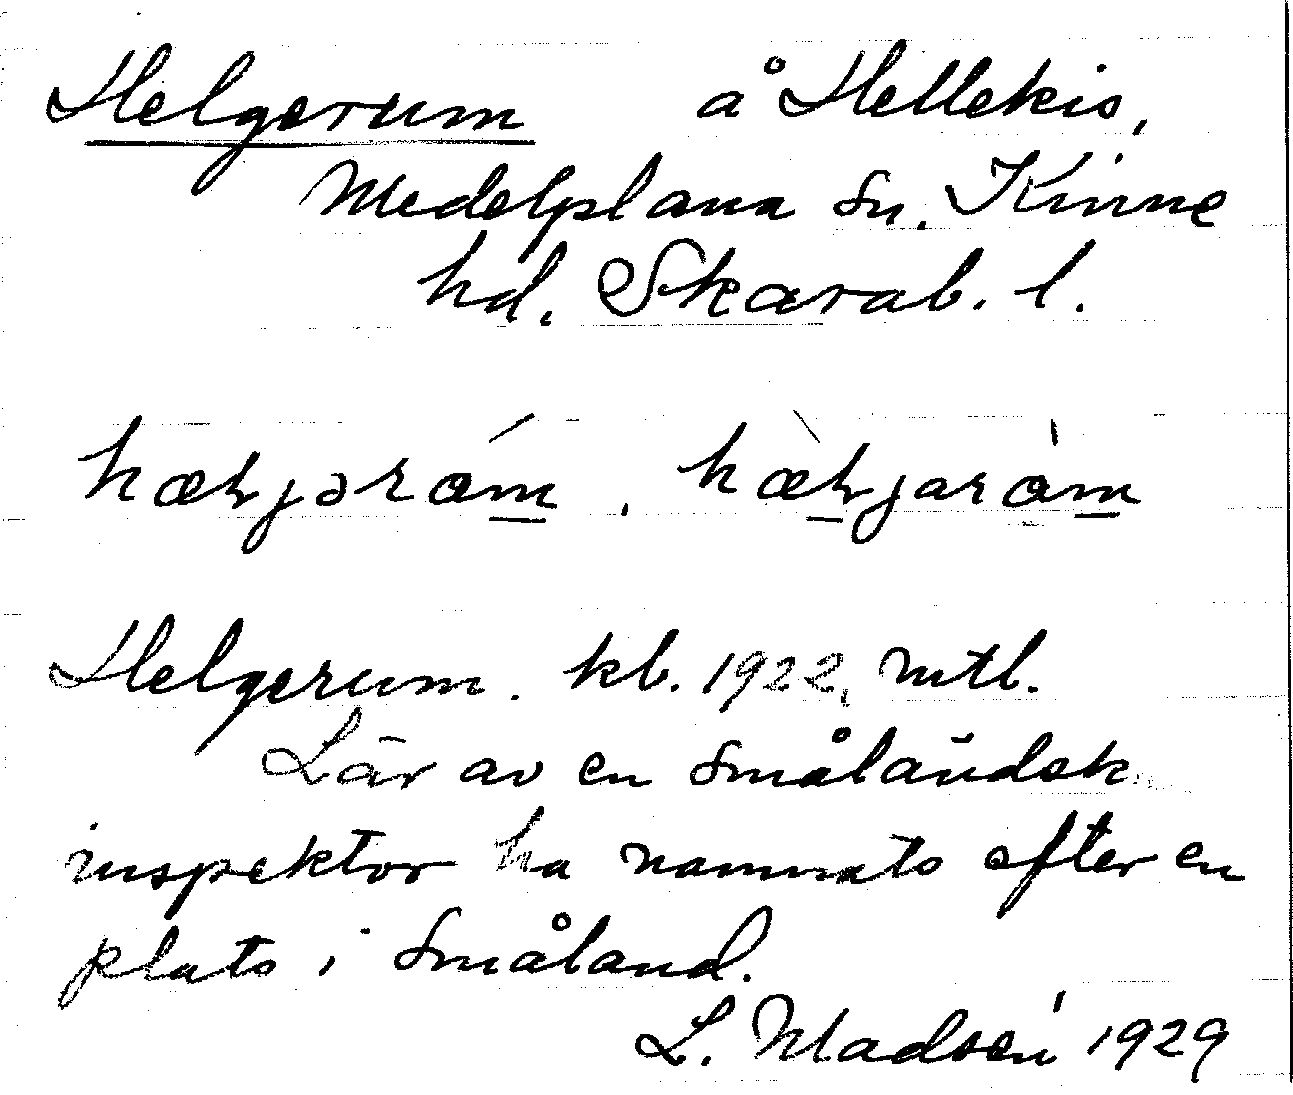 Helgerum å Hellekis,
Medelplana sn. Kinne
hd. Skarab. l.
Helgerum. kb. 1922, mtl.
Lär av en småländsk
inspektor ha namnats efter en
plats i Småland.
L. Madsén 1929